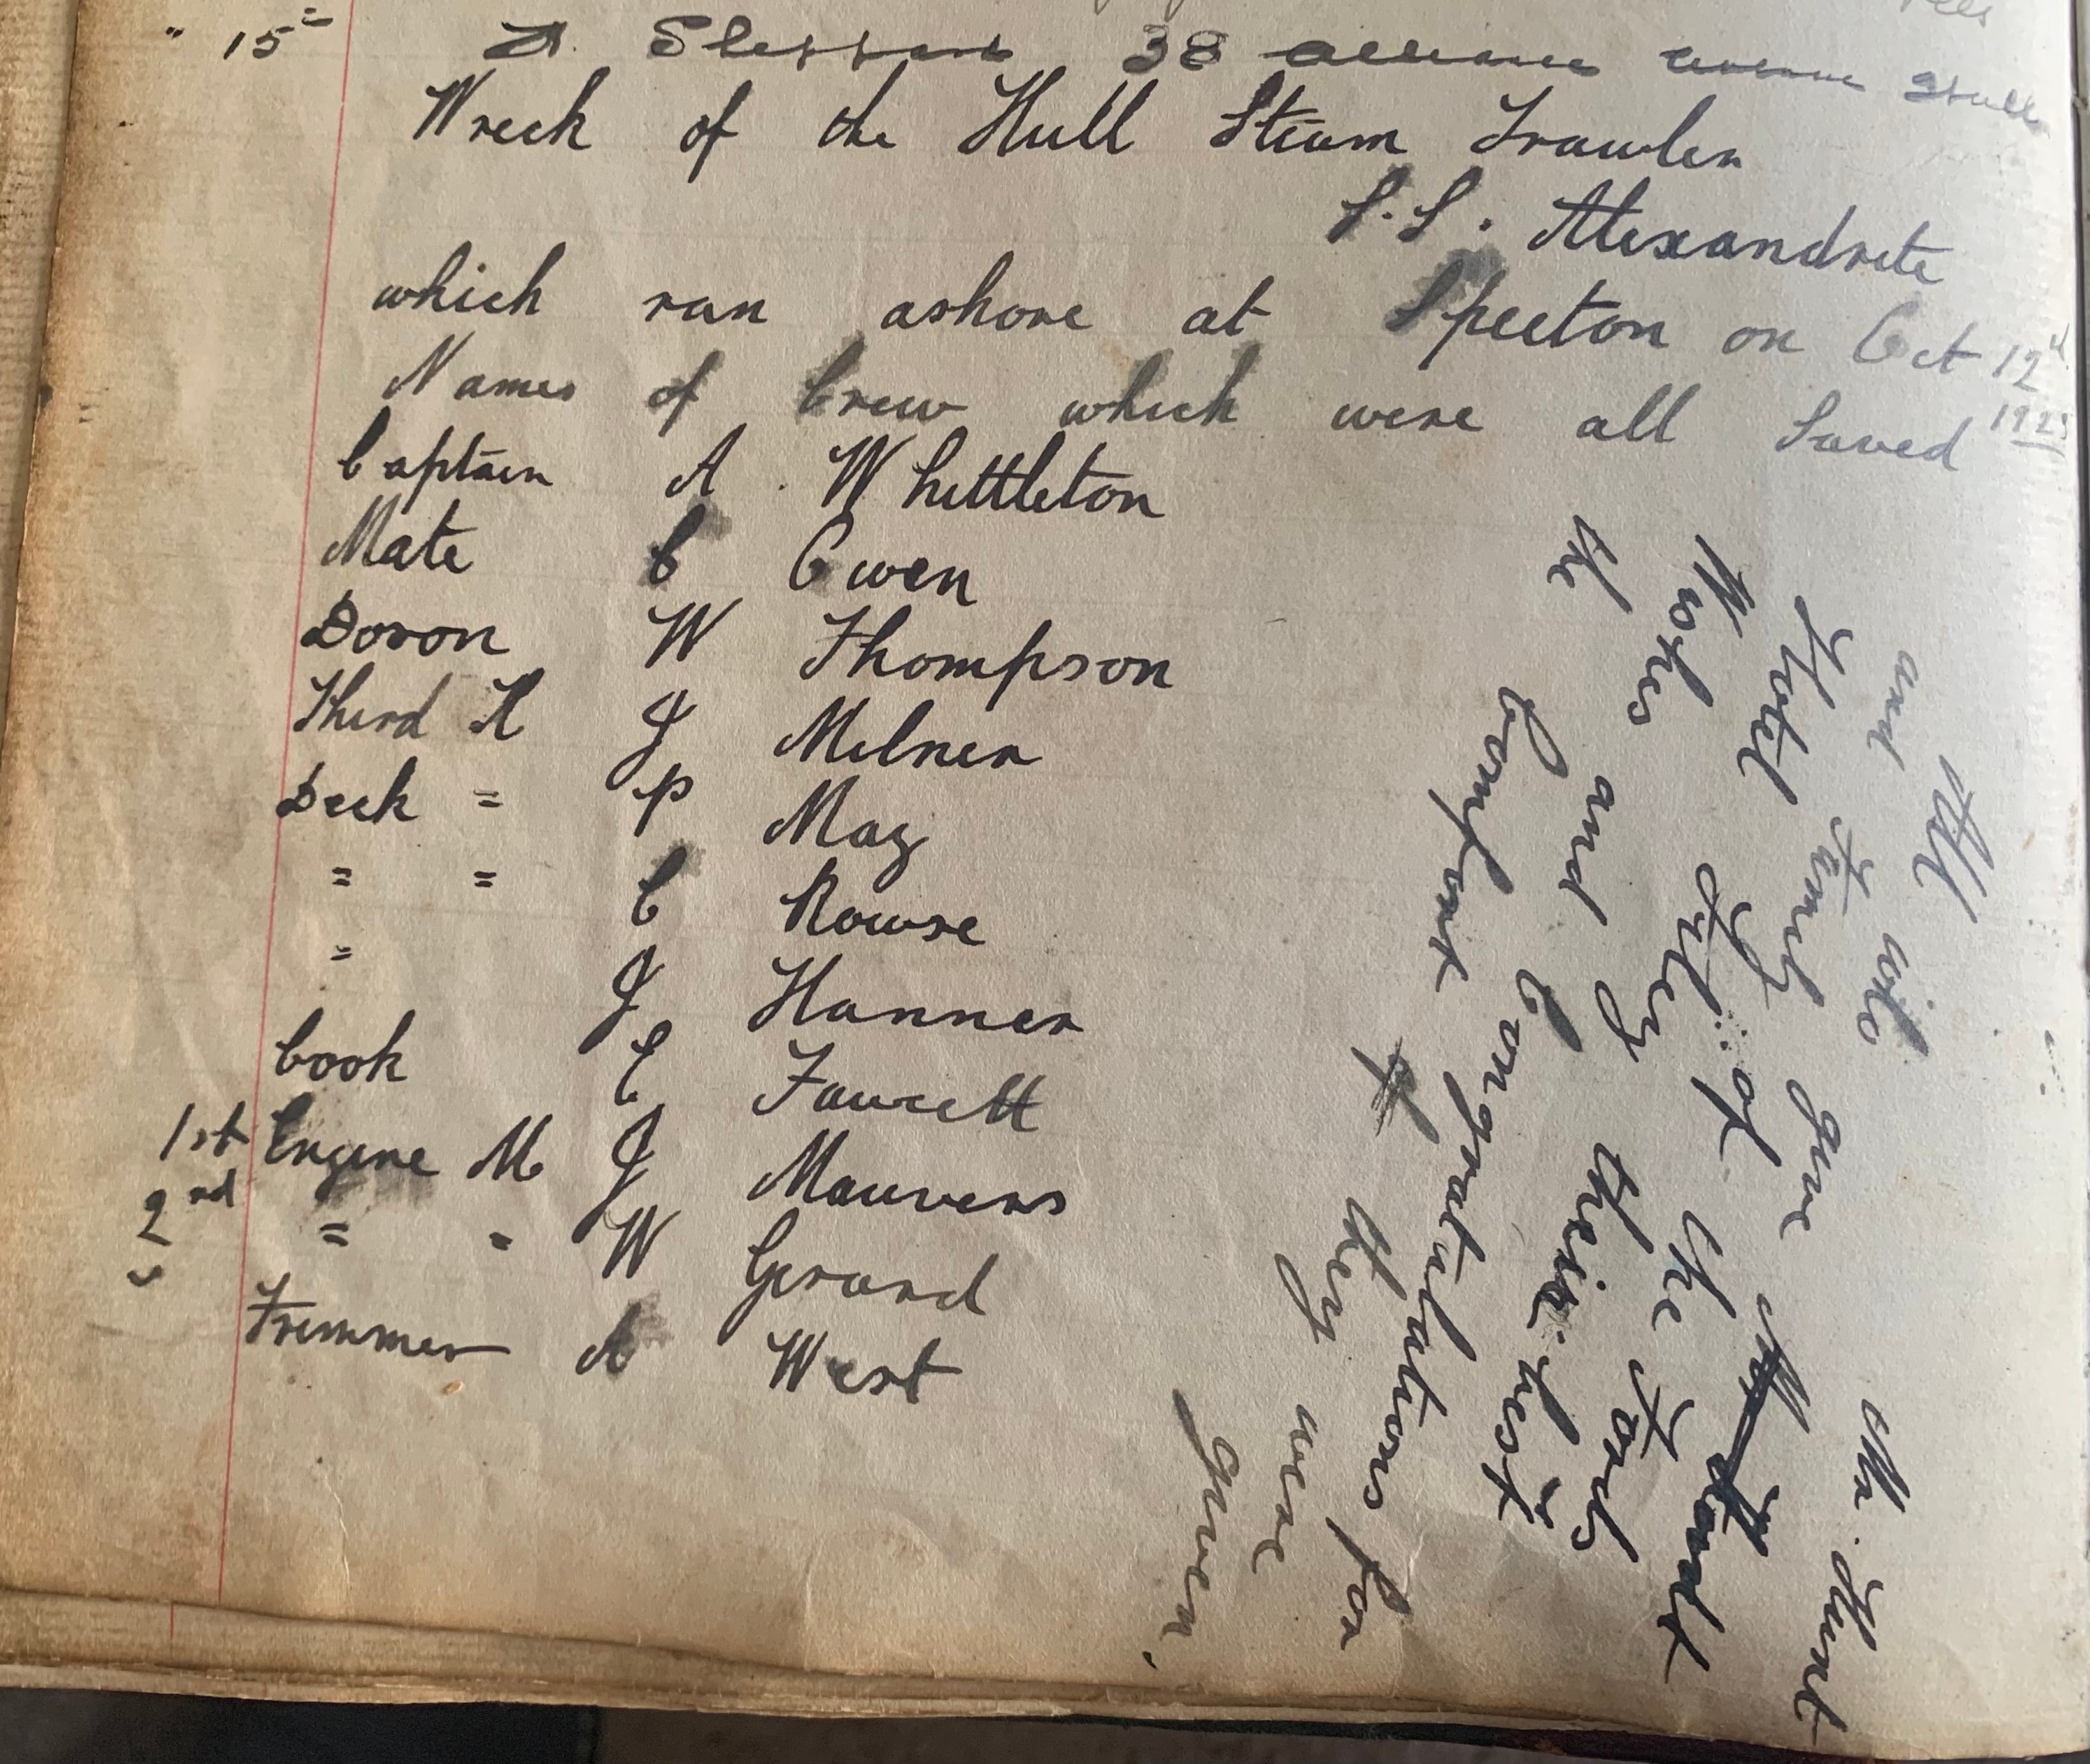 " 15 = A. Slessor 38 alliance avenue Hull
Wreck of the Hull Steam Trawler
S.S. Alexandrite
which ran ashore at Speeton on Oct 12th
1925
Names of Crew which were all Saved
Captain A. Whittleton
Mate C Owen
Boson W Thompson
Third H J Milner
Deck = P May
= = C Rowse
= J Hanner
Cook E Fawcett
1st Engine M J Mauvers
2nd = = W Gerard
Trimmer A West
All wile give Mr. Hunt
and Family
Hotel Filey of the Fords
Wishes and their best
the Congratulations for
Comfort they were
given.